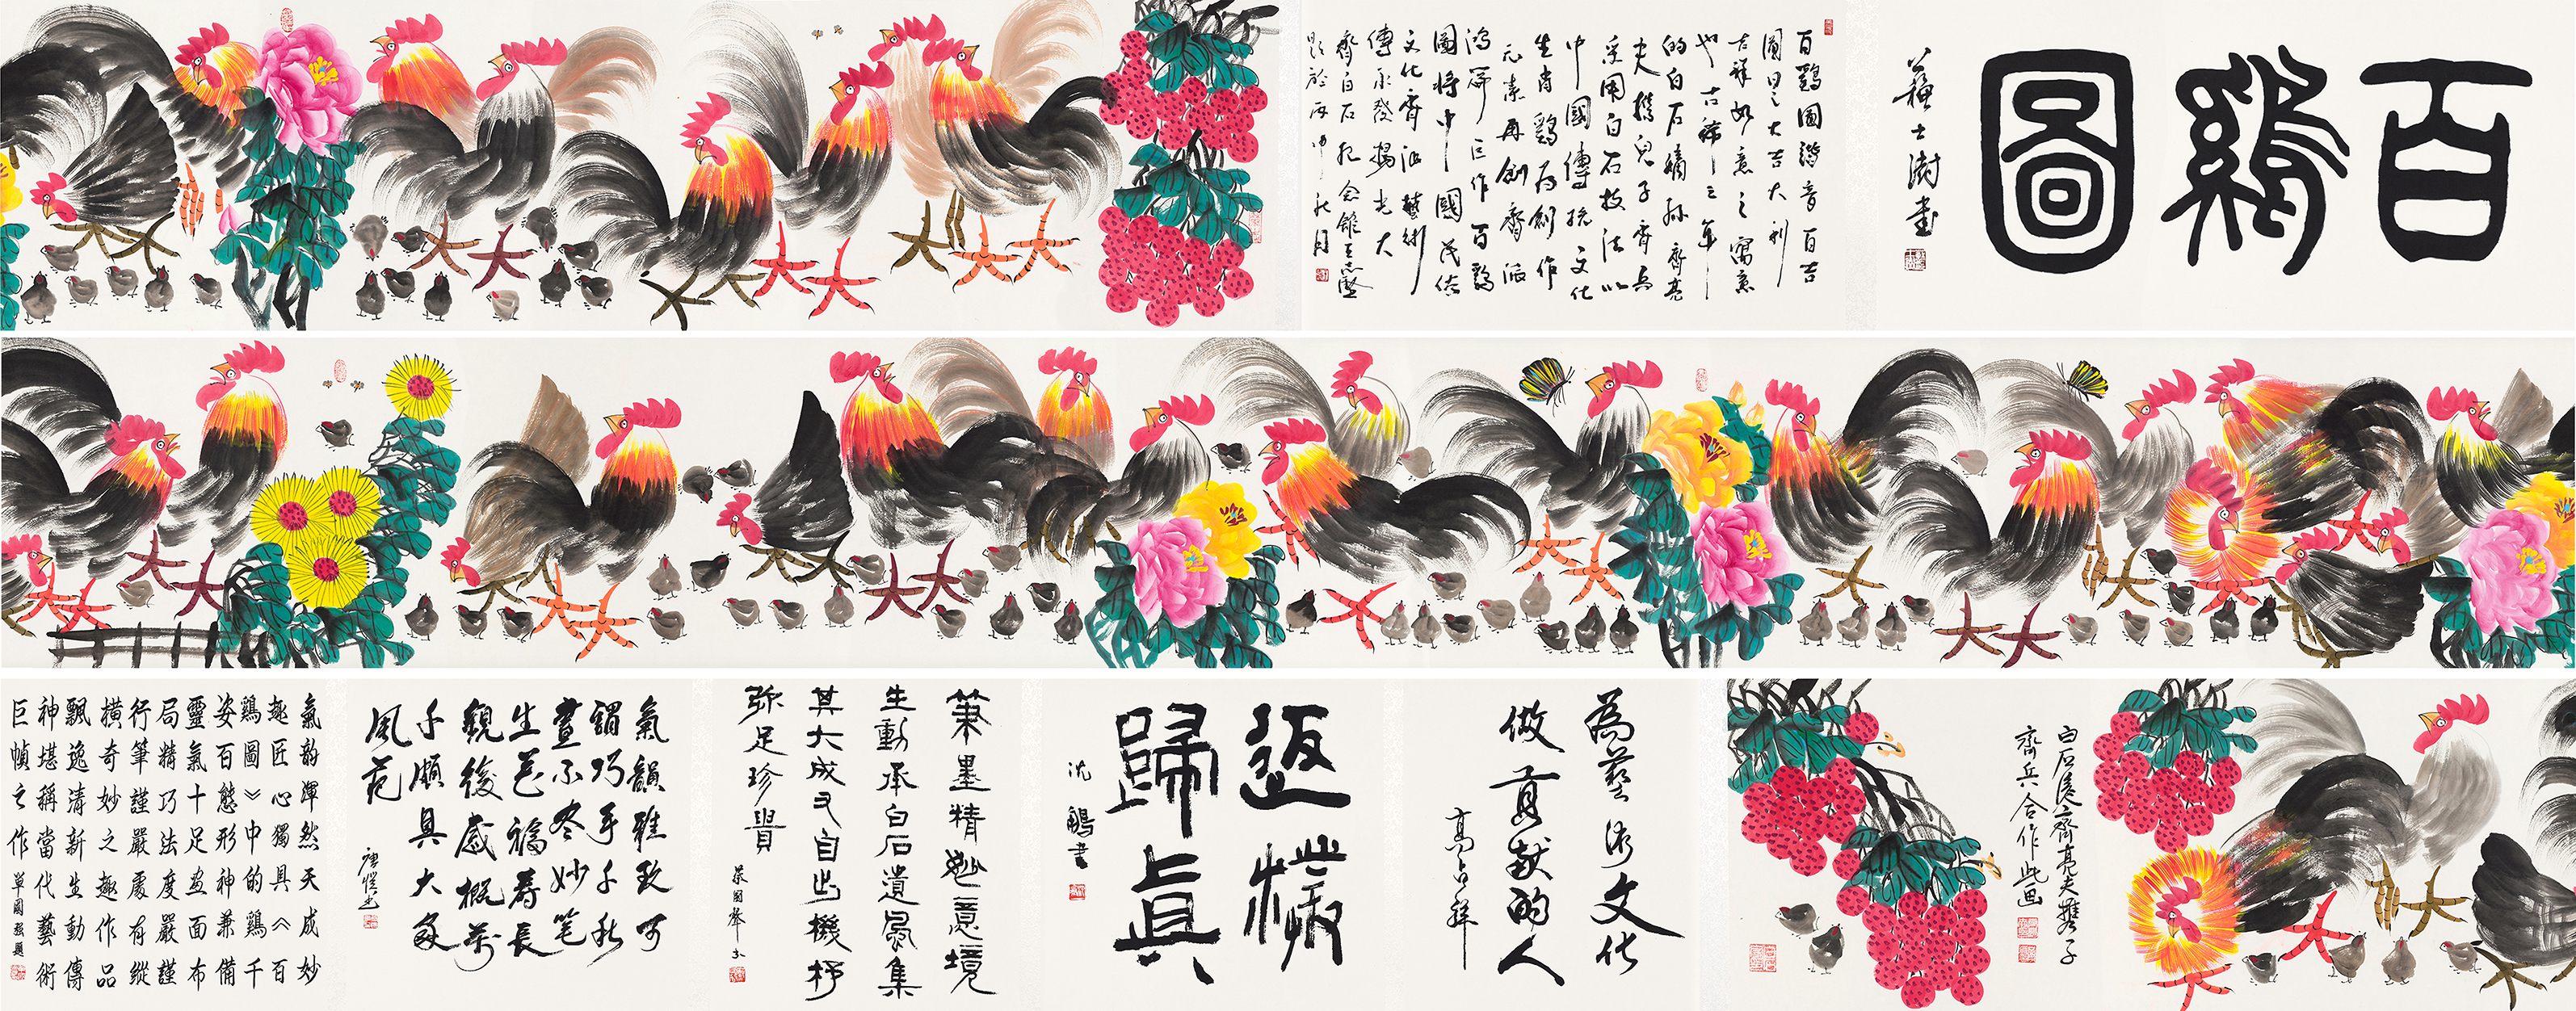 百鷄圖
蘇士澍書
百鷄圖諧音百吉
圖見之大吉大利
吉祥如意之寓意
也古稀之年
的白石嫡孫齊亮
夫携兒子齊兵
采用白石技法以
中國傳統文化
生肖鷄為創作
元素再創齊派
鴻篇巨作百鷄
圖將中國民俗
文化齊派藝術
傳承發揚光大
齊白石紀念館
題於丙申秋月
白石后裔齊亮夫携子
齊兵合作此画
為藝術文化
做貢献的人
高占祥
返樸
歸真
沈鵬書
筆墨精妙意境
生動承白石遺風集
其大成又自出機杼
弥足珍貴
氣韻雅致可
謂巧手千秋
畫不冬妙笔
生花福寿長
觀後感概萬
千頗具大家
風范
氣韵渾然天成妙
趣匠心獨具《百
鷄圖》中的鷄千
姿百態形神兼備
靈氣十足画面布
局精巧法度嚴謹
行筆謹嚴處有縱
橫奇妙之趣作品
飄逸清新生動傳
神堪稱當代藝術
巨幀之作
單國強題